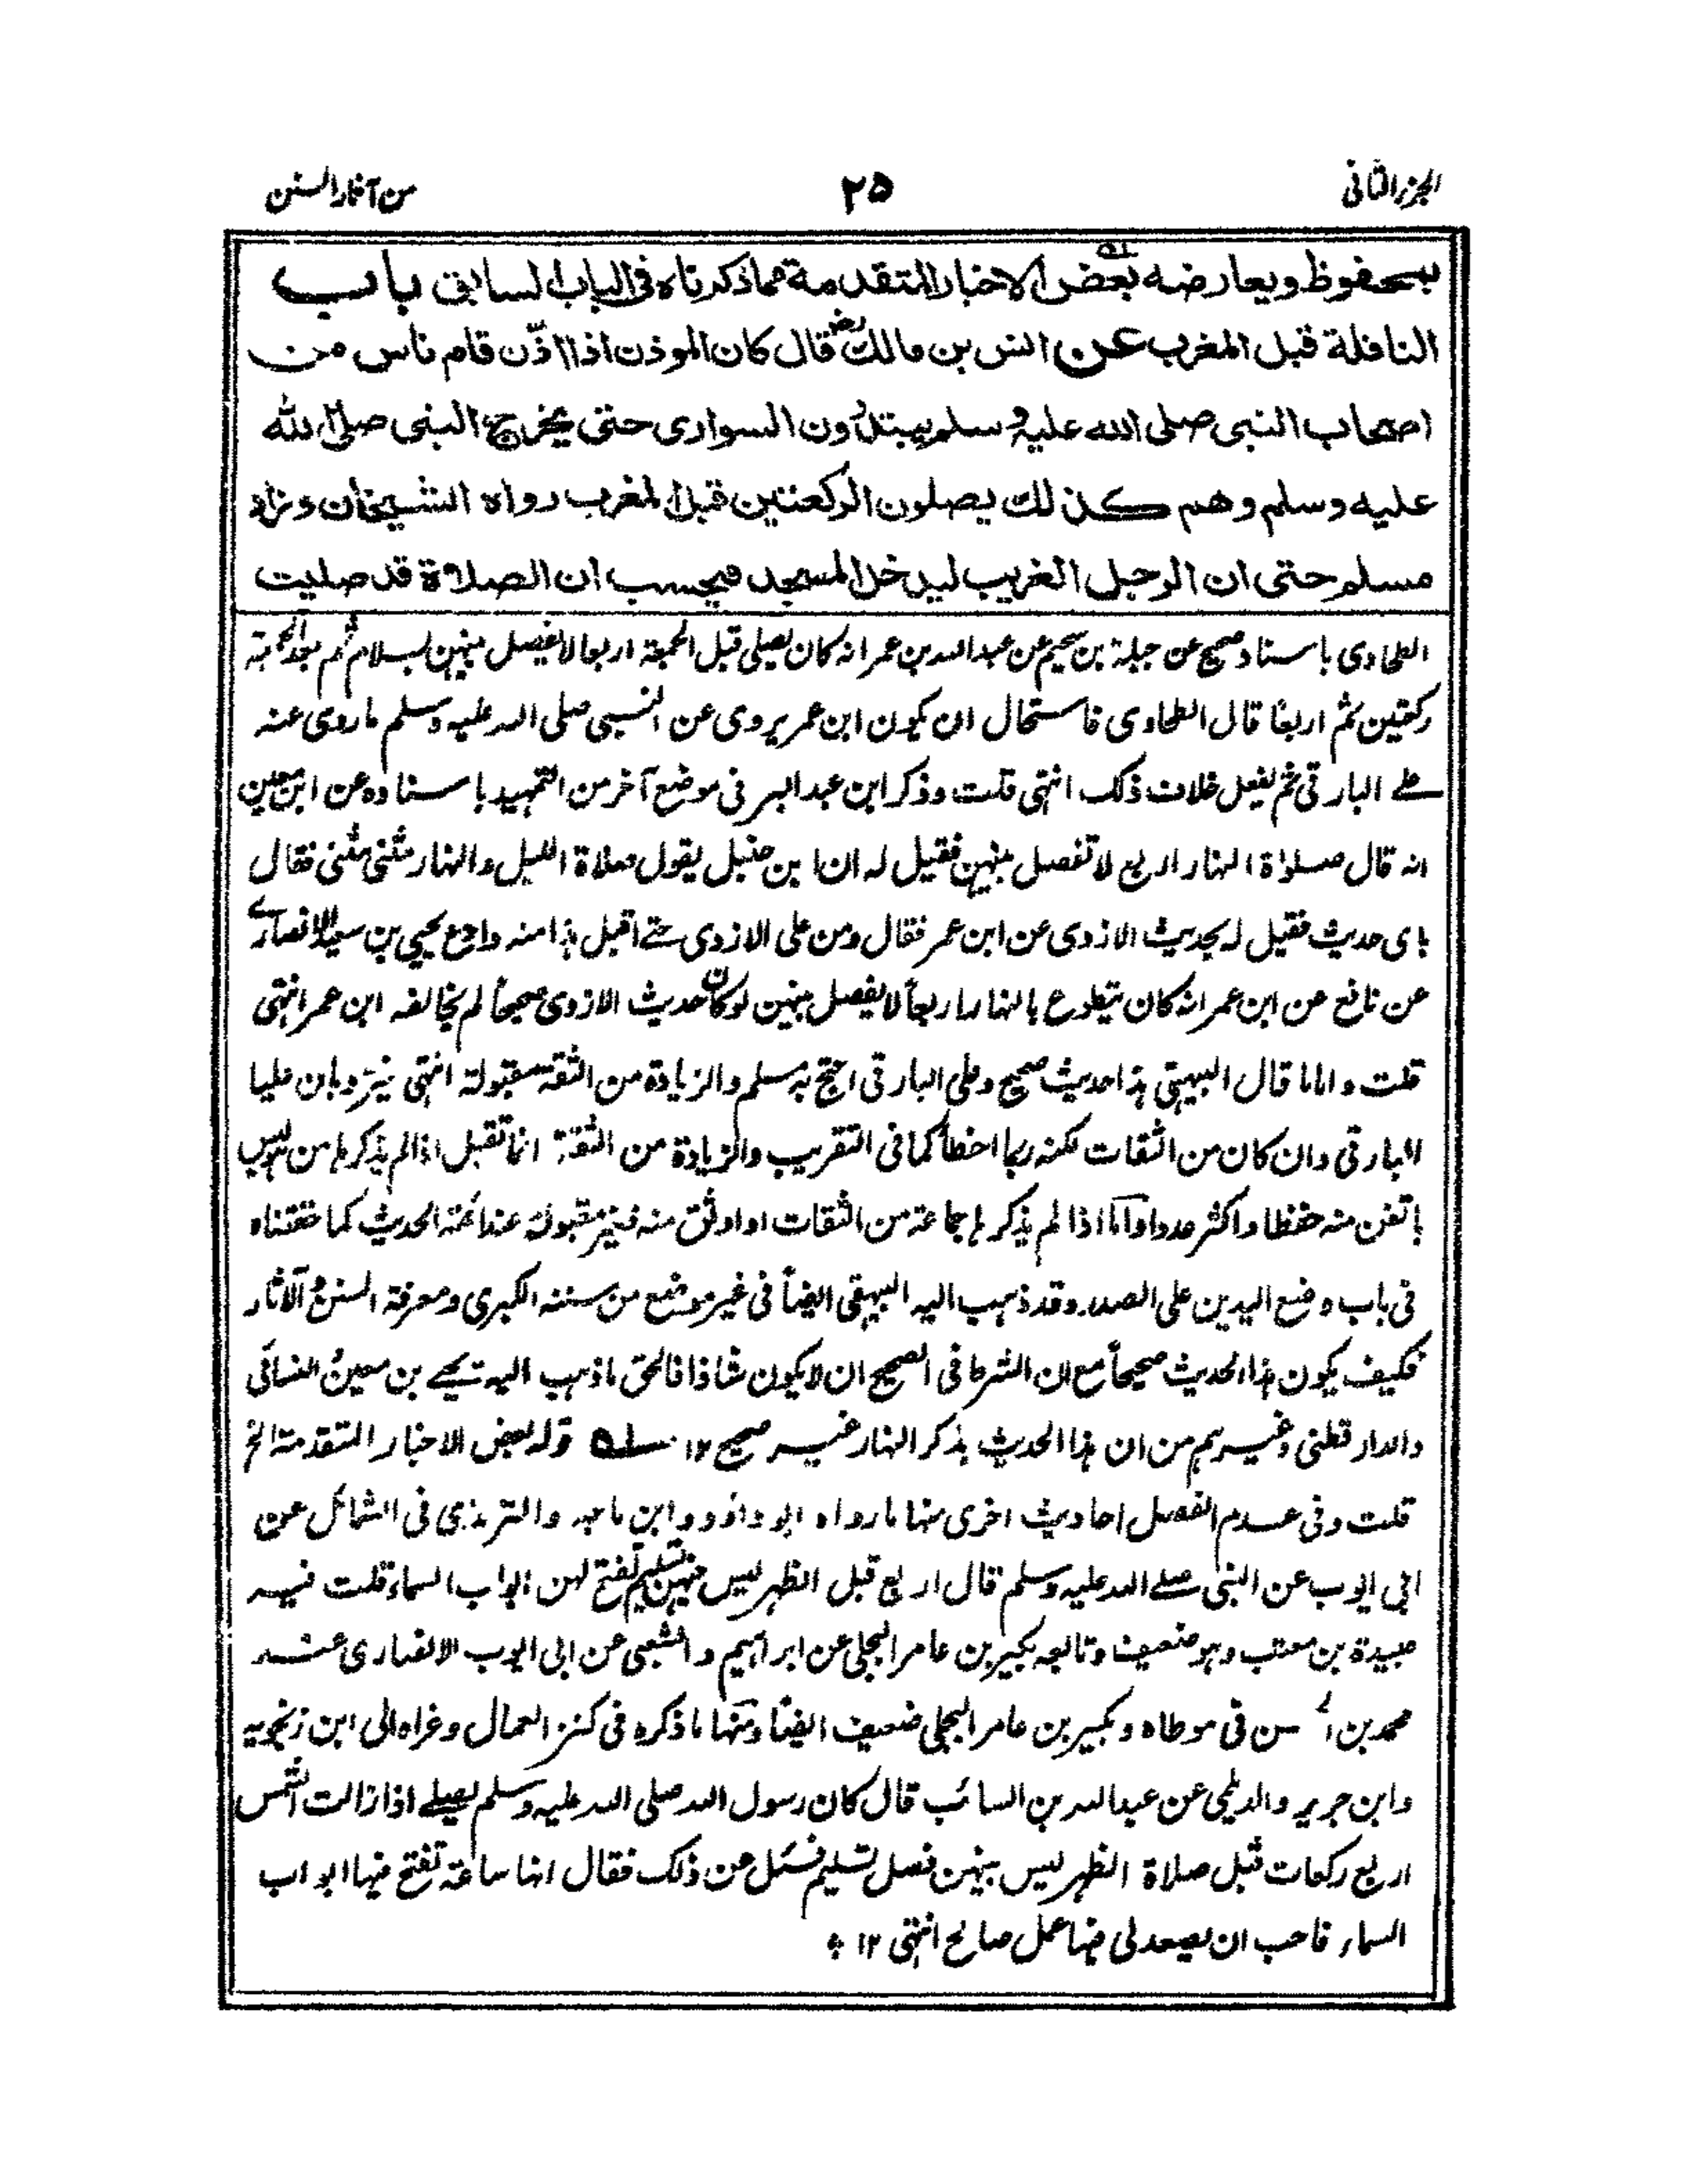 الجزء الثانى
٢٥
من آثار السنن
بمحفوظ ويعارضه بعض الاخبار المتقدمة مما ذكرناه فى الباب السابق باب
النافلة قبل المغرب عن انس بن مالك رض قال كان الموذن اذا اذّن قام ناس من
اصحاب النبى صلى الله عليه وسلم يبتدرون السوارى حتى يخرج النبى صلى الله
عليه وسلم وهم كذلك يصلون الركعتين قبل المغرب رواه الشيخان وزاد
مسلم حتى ان الرجل الغريب ليدخل المسجد فيحسب ان الصلاة قد صليت
الطحاوى باسناد صحيح عن جبلة بن سحيم عن عبد الله بن عمر انه كان يصلى قبل الجمعة اربعا لا يفصل بينهن بسلام ثم بعد الجمعة
ركعتين ثم اربعًا قال الطحاوى فاستحال ان يكون ابن عمر يروى عن النبى صلى الله عليه وسلم ما روى عنه
على البارقى ثم يفعل خلاف ذلك انتهى قلت وذكر ابن عبد البر فى موضع آخر من التمهيد باسناده عن ابن معين
انه قال صلوٰة النهار اربع لا تفصل بينهن فقيل له ان ابن حنبل يقول صلاة الليل والنهار مثنى مثنى فقال
باى حديث فقيل له بحديث الازدى عن ابن عمر فقال ومن على الازدى حتى اقبل هذا منه وادع يحيى بن سعيد الانصارى
عن نافع عن ابن عمر انه كان يتطوع بالنهار اربعاً لا يفصل بينهن لو كان حديث الازدى صحيحاً لم يخالفه ابن عمر انتهى
قلت واما ما قال البيهقى هذا حديث صحيح وعلى البارقى احتج به مسلم والزيادة من الثقة مقبولة انتهى فيرد بان عليا
البارقى وان كان من الثقات لكنه ربما اخطأ كما فى التقريب والزيادة من الثقة انما تقبل اذا لم يذكرها من ليس
باتقن منه حفظا واكثر عددا واما اذا لم يذكرها جماعة من الثقات او اوثق منه فغير مقبولة عند ائمة الحديث كما حققناه
فى باب وضع اليدين على الصدر وقد ذهب اليه البيهقى ايضاً فى غير موضع من سننه الكبرى ومعرفة السنن والآثار
فكيف يكون هذا الحديث صحيحاً مع ان الشرط فى الصحيح ان لا يكون شاذا فالحق ما ذهب اليه يحيى بن معين والنسائى
والدارقطنى وغيرهم من ان هذا الحديث بذكر النهار غير صحيح ١٢ ـ۵ـ قوله بعض الاخبار المتقدمة الخ
قلت وفى عدم الفصل احاديث اخرى منها ما رواه ابو داؤد وابن ماجه والترمذى فى الشمائل عن
ابى ايوب عن النبى صلى الله عليه وسلم قال اربع قبل الظهر ليس فيهن تسليم تفتح لهن ابواب السماء قلت فيه
عبيدة بن معتب وهو ضعيف وتابعه بكير بن عامر البجلى عن ابراهيم والشعبى عن ابى ايوب الانصارى عند
محمد بن سن فى موطاه وبكير بن عامر البجلى ضعيف ايضًا ومنها ما ذكره فى كنز العمال وعزاه الى ابن زنجويه
وابن جرير والديلمى عن عبد الله بن السائب قال كان رسول الله صلى الله عليه وسلم يصلى اذا زالت الشمس
اربع ركعات قبل صلاة الظهر ليس بينهن فصل تسليم فسئل عن ذلك فقال انها ساعة تفتح فيها ابواب
السماء فاحب ان يصعد لى فيها عمل صالح انتهى ١٢